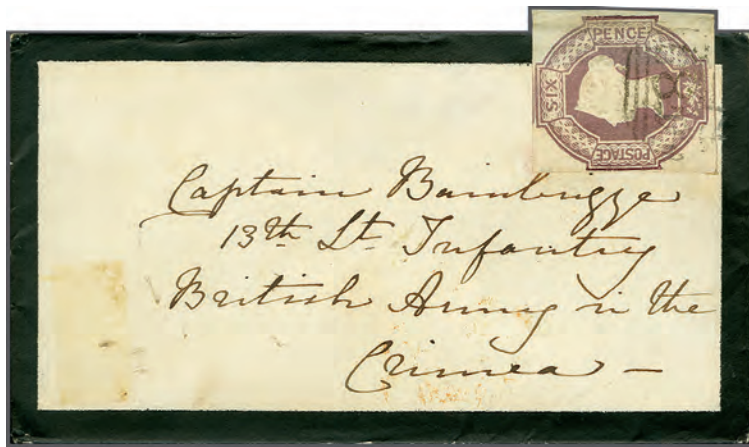 PENCE
SIX
POSTAGE
Captain Bainbrigge
13th Lt Infantry
British Army in the
Crimea –